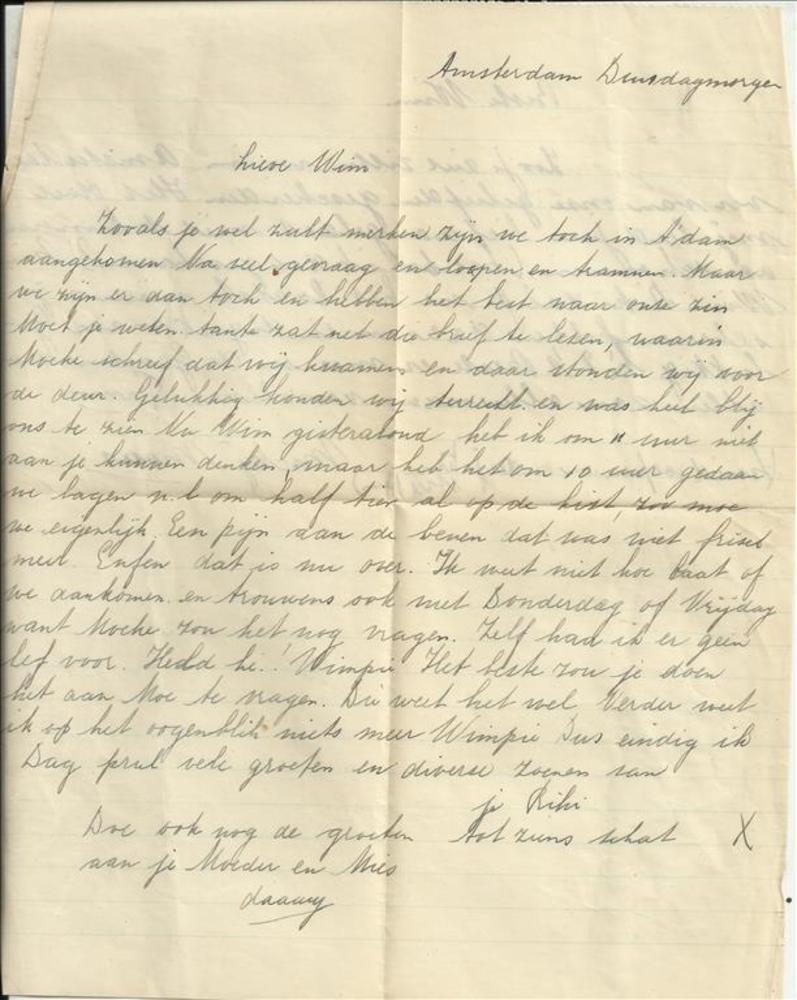 Amsterdam Dinsdagmorgen
Lieve Wim
Zooals je wel zult merken zijn we toch in A'dam
aangekomen Na veel gevraag en loopen en trammen. Maar
we zijn er dan toch en hebben het best naar onze zin
Moet je weten tante zat net die brief te lezen, waarin
Moeke schreef dat wij kwamen en daar stonden wij voor
de deur. Gelukkig konden wij terrecht en was heel blij
ons te zien Nu Wim gisteravond heb ik om 11 uur niet
aan je kunnen denken, maar heb het om 10 uur gedaan
we lagen n.l om half tien al op de kist, zoo moe
we eigenlijk. Een pijn aan de benen dat was niet frisch
meer. Enfen dat is nu over. Ik weet niet hoe laat of
we aankomen en trouwens ook niet Donderdag of Vrijdag
want Moeke zou het nog vragen. Zelf had ik er geen
lef voor. Held hé! Wimpie Het beste zou je doen
het aan Moe te vragen. Die weet het wel Verder weet
ik op het oogenblik niets meer Wimpie Dus eindig ik
Dag prul vele groeten en diverse zoenen van
je Riki
Doe ook nog de groeten tot ziens schat X
aan je Moeder en Mies
daaaag